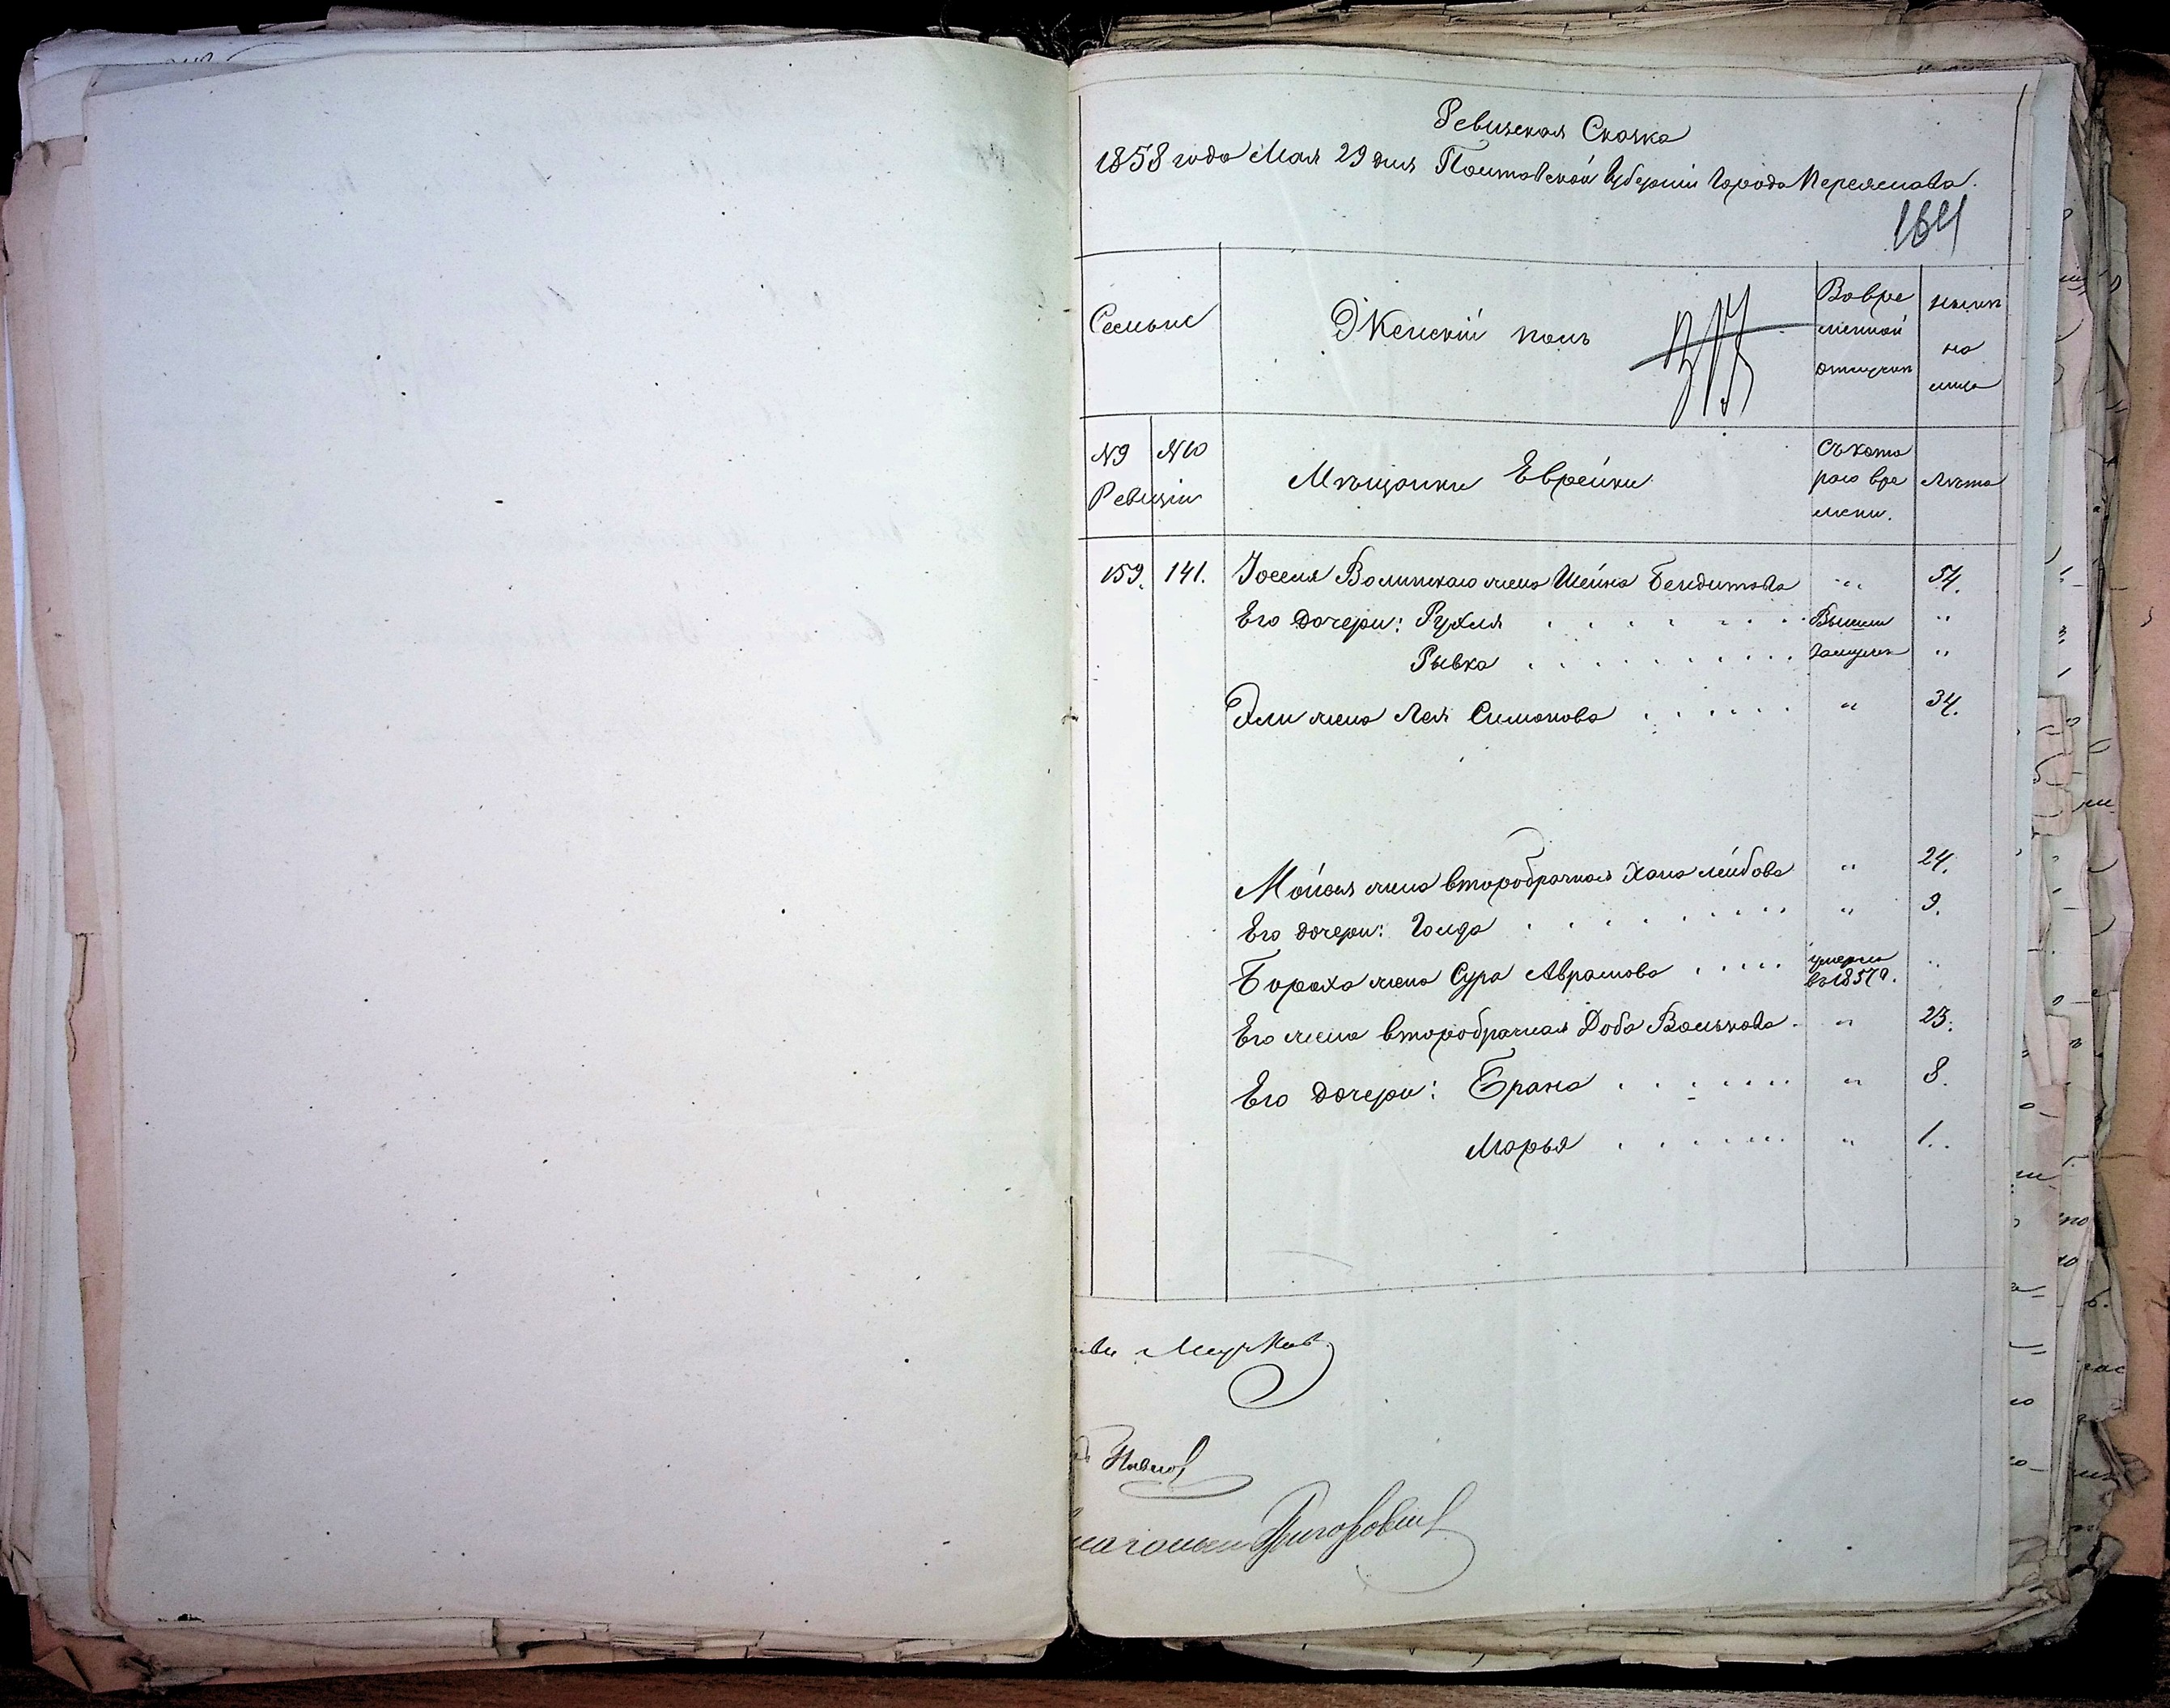 Ревизская Сказка
1858 года Мая 29 дня Полтавской Губернии Города Переяслава.
164
Семьи
Женскій полъ
Вовре
менной
отлучкѣ
нынѣ
на
лицо
№9 №10
Ревизіи
Мѣщанки Еврейки
Съкото
раго вре
мени.
Лѣта
159. 141. Іоселя Волинскаго жена Шейна Бендитова " 54.
Его дочери: Рухля . . . . . . . Вышли "
Рывка . . . . . . . . . . Замужъ "
Эли жена Лея Симонова . . . . . . " 34.
Мойсея жена второбрачная Хана Лейбова " 24.
Его дочери: Голда . . . . . . . . . " 9.
Бороха жена Сура Аврамова . . . . . умерла
въ1857г. "
Его жена второбрачная Доба Волькова. " 23.
Его дочери: Брана . . . . . . . " 8.
Марья . . . . . . . " 1.
Павлов
Григорович